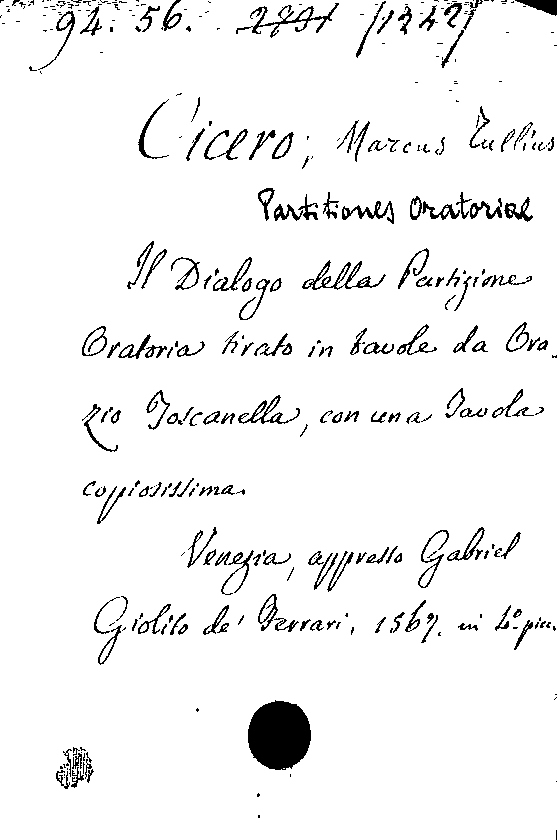 94. 56. 2731 /1242/
Cicero, Marcus Tullius
Partitiones Oratoriae
Il Dialogo della Partizione
Oratoria tirato in tavole da Ora-
zio Toscanella, con una Tavola
copiosissima.
Venezia, appresso Gabriel
Giolito de' Ferrari, 1567. in 4º picc.